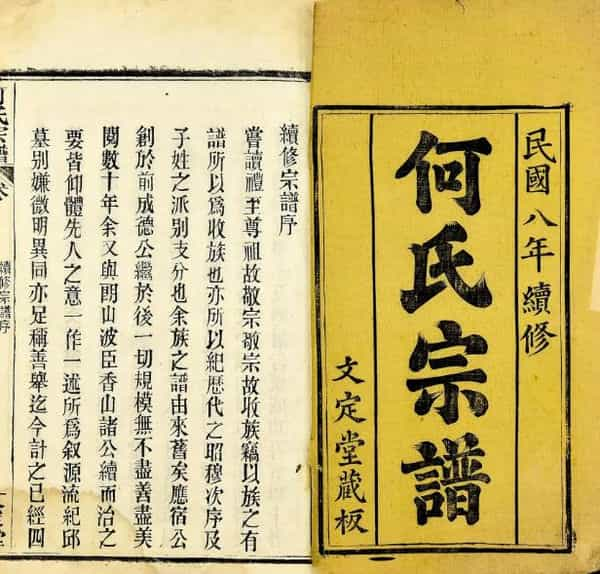 民國八年續修
何氏宗譜
文定堂藏板
續修宗譜序
嘗讀禮至尊祖故敬宗敬宗故收族竊以族之有
譜所以為收族也亦所以紀歷代之昭穆次序及
子姓之派別支分也余族之譜由來舊矣應宿公
創於前成德公繼於後一切規模無不盡善盡美
閱數十年余又與朗山波臣香山諸公續而治之
要皆仰體先人之意一作一述所為敘源流紀邱
墓別嫌微明異同亦足稱善舉迄今計之已經四
續修宗譜序